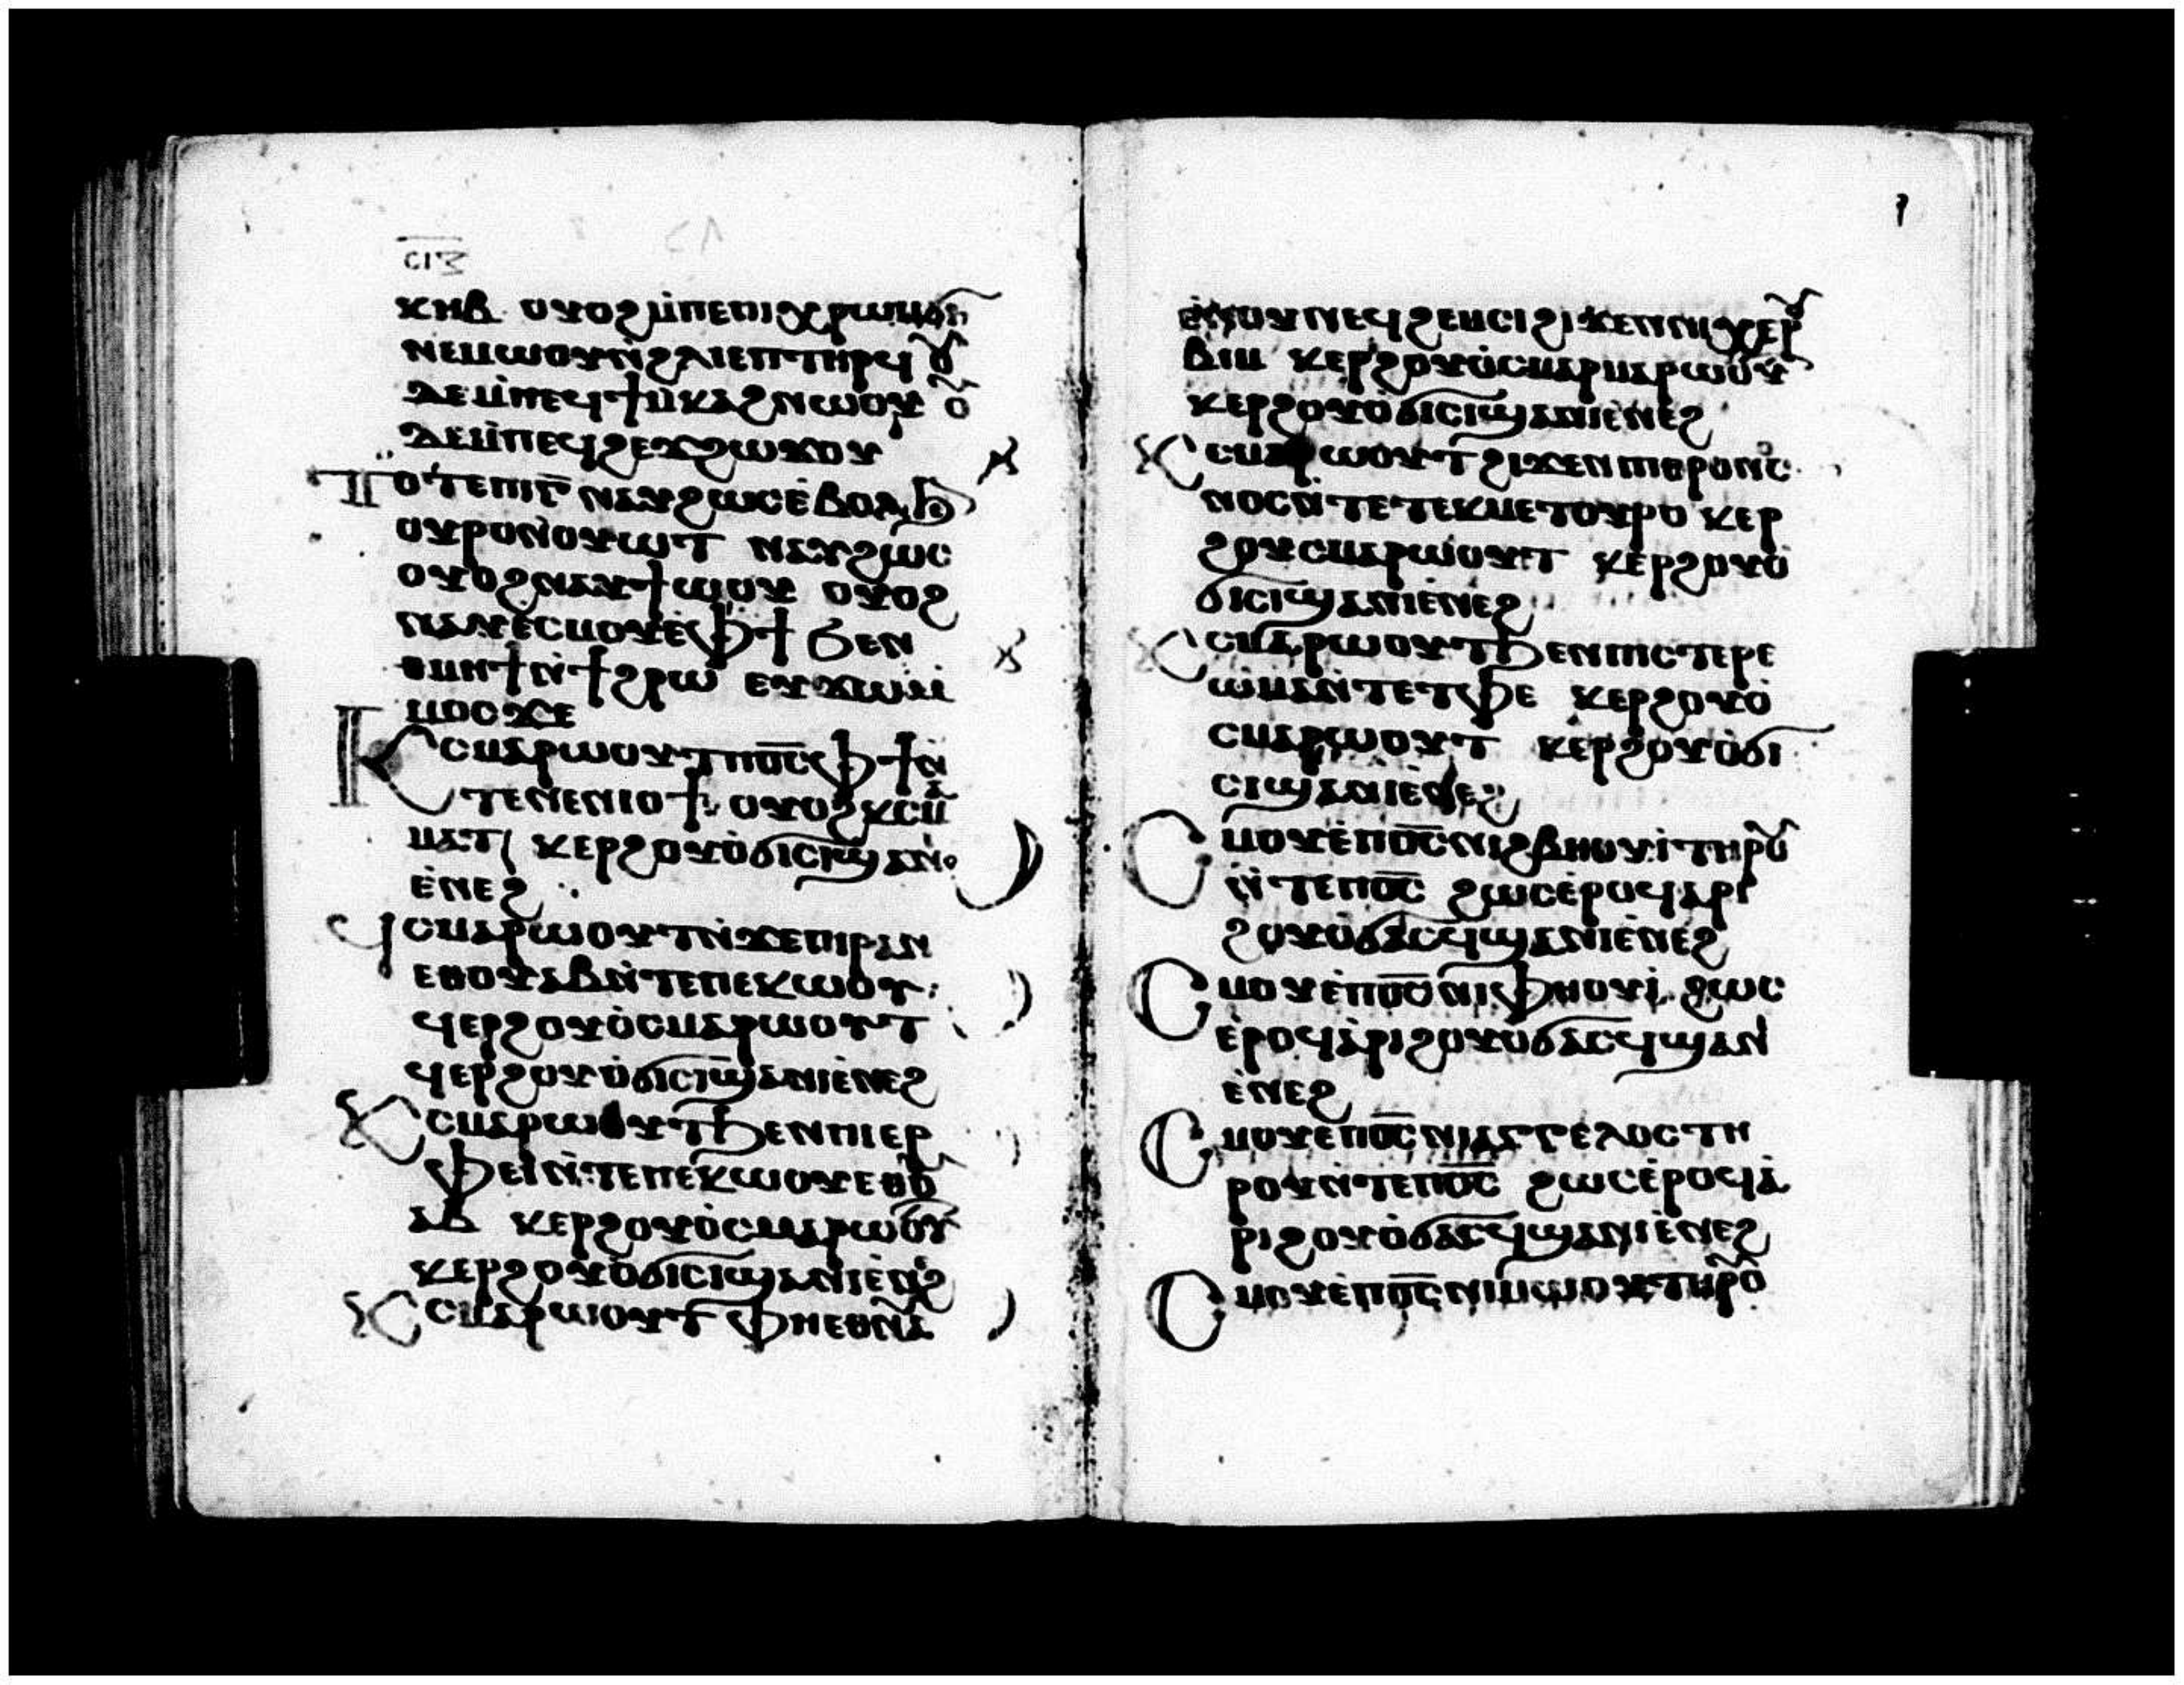 ⲥⲓⲍ
ⲕⲏⲃ ⲟⲩⲟϩ ⲙ̀ⲡⲉⲡⲓⲭⲣⲱⲙ ϭⲓ
ⲛⲉⲙⲱⲟⲩ ⲛ̀ϩⲗⲓ ⲉⲡⲧⲏⲣϥ ⲟⲩ
ⲇⲉ ⲙ̀ⲡⲉϥϯⲙ̀ⲕⲁϩ ⲛⲱⲟⲩ ⲟⲩ
ⲇⲉ ⲙ̀ⲡⲉϥϩⲉϫϩⲱϫⲟⲩ
Ⲧⲟⲧⲉ ⲡⲓⲅ̅ ⲛⲁⲩϩⲱⲥ ⲉ̀ⲃⲟⲗ ϧⲉⲛ
ⲟⲩⲣⲟ ⲛ̀ⲟⲩⲱⲧ ⲛⲁⲩϩⲱⲥ
ⲟⲩⲟϩ ⲛⲁⲩϯⲱⲟⲩ ⲟⲩⲟϩ
ⲛⲁⲩⲥ̀ⲙⲟⲩ ⲉ̀ⲫϯ ϧⲉⲛ
ⲑⲙⲏϯ ⲛ̀ϯϩⲣⲱ ⲉⲩϫⲱⲙ̀
ⲙⲟⲥ ϫⲉ
Ⲕⲥⲙⲁⲣⲱⲟⲩⲧ ⲡⲟ̅ⲥ̅ ⲫϯ ⲛ̀
ⲧⲉ ⲛⲉⲛⲓⲟϯ ⲟⲩⲟϩ ⲕⲥⲙⲁ
ⲙⲁⲧ ⲕⲉⲣϩⲟⲩⲟ̀ ϭⲓⲥⲓ ϣⲁ ⲛⲓ
ⲉ̀ⲛⲉϩ
Ϥⲥⲙⲁⲣⲱⲟⲩⲧ ⲛ̀ϫⲉ ⲡⲓⲣⲁⲛ
ⲉⲑⲟⲩⲁⲃ ⲛ̀ⲧⲉ ⲡⲉⲕⲱⲟⲩ
ϥⲉⲣϩⲟⲩⲟ̀ ⲥⲙⲁⲣⲱⲟⲩⲧ
ϥⲉⲣϩⲟⲩⲟ̀ ϭⲓⲥⲓ ϣⲁ ⲛⲓⲉ̀ⲛⲉϩ
Ⲕⲥⲙⲁⲣⲱⲟⲩⲧ ϧⲉⲛ ⲡⲓⲉⲣ
ⲫⲉⲓ ⲛ̀ⲧⲉ ⲡⲉⲕⲱⲟⲩ ⲉⲑⲟⲩ
ⲁⲃ ⲕⲉⲣϩⲟⲩⲟ̀ ⲥⲙⲁⲣⲱⲟⲩⲧ
ⲕⲉⲣϩⲟⲩⲟ̀ ϭⲓⲥⲓ ϣⲁ ⲛⲓⲉ̀ⲛⲉϩ
Ⲕⲥⲙⲁⲣⲱⲟⲩⲧ ⲫⲏ ⲉⲑⲛⲁ
ⲉ̀ⲛⲟⲩⲛ ⲉϥϩⲉⲙⲥⲓ ϩⲓϫⲉⲛ ⲛⲓⲭⲉⲣⲟⲩ
ⲃⲓⲙ ⲕⲉⲣϩⲟⲩⲟ̀ ⲥⲙⲁⲣⲱⲟⲩⲧ
ⲕⲉⲣϩⲟⲩⲟ̀ ϭⲓⲥⲓ ϣⲁ ⲛⲓⲉ̀ⲛⲉϩ
Ⲕⲥⲙⲁⲣⲱⲟⲩⲧ ϩⲓϫⲉⲛ ⲡⲓⲑⲣⲟ
ⲛⲟⲥ ⲛ̀ⲧⲉ ⲧⲉⲕⲙⲉⲧⲟⲩⲣⲟ ⲕⲉⲣ
ϩⲟⲩⲥⲙⲁⲣⲱⲟⲩⲧ ⲕⲉⲣϩⲟⲩⲟ̀
ϭⲓⲥⲓ ϣⲁ ⲛⲓⲉ̀ⲛⲉϩ
Ⲕⲥⲙⲁⲣⲱⲟⲩⲧ ϧⲉⲛ ⲡⲓⲥⲧⲉⲣⲉ
ⲱⲙⲁ ⲛ̀ⲧⲉ ⲧⲫⲉ ⲕⲉⲣϩⲟⲩⲟ̀
ⲥⲙⲁⲣⲱⲟⲩⲧ ⲕⲉⲣϩⲟⲩⲟ̀ ϭⲓ
ⲥⲓ ϣⲁ ⲛⲓⲉ̀ⲛⲉϩ
Ⲥⲙⲟⲩ ⲉ̀ⲡⲟ̅ⲥ̅ ⲛⲓϩⲃⲏⲟⲩⲓ̀ ⲧⲏⲣⲟⲩ
ⲛ̀ⲧⲉ ⲡⲟ̅ⲥ̅ ϩⲱⲥ ⲉ̀ⲣⲟϥ ⲁⲣⲓ
ϩⲟⲩⲟ̀ ϭⲁⲥϥ ϣⲁ ⲛⲓⲉ̀ⲛⲉϩ
Ⲥⲙⲟⲩ ⲉ̀ⲡⲟ̅ⲥ̅ ⲛⲓⲫⲏⲟⲩⲓ̀ ϩⲱⲥ
ⲉ̀ⲣⲟϥ ⲁ̀ⲣⲓϩⲟⲩⲟ̀ ϭⲁⲥϥ ϣⲁ ⲛⲓ
ⲉ̀ⲛⲉϩ
Ⲥⲙⲟⲩ ⲉ̀ⲡⲟ̅ⲥ̅ ⲛⲓⲁⲅⲅⲉⲗⲟⲥ ⲧⲏ
ⲣⲟⲩ ⲛ̀ⲧⲉ ⲡⲟ̅ⲥ̅ ϩⲱⲥ ⲉ̀ⲣⲟϥ ⲁ̀
ⲣⲓϩⲟⲩⲟ̀ ϭⲁⲥϥ ϣⲁ ⲛⲓⲉ̀ⲛⲉϩ
Ⲥⲙⲟⲩ ⲉ̀ⲡⲟ̅ⲥ̅ ⲛⲓⲙⲱⲟⲩ ⲧⲏⲣⲟⲩ